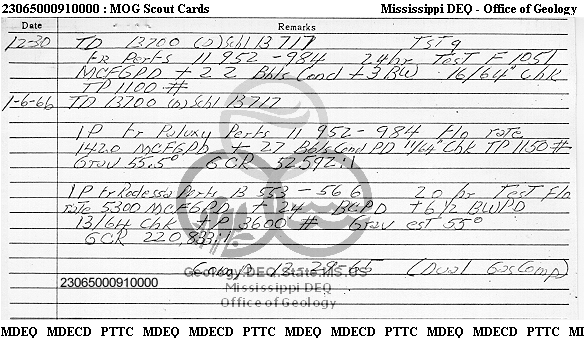 23065000910000 : MOG Scout Cards Mississippi DEQ - Office of Geology
Date Remarks
12-30 TD 13700 (o) Schl 13717 TSTg
Fr Perfs 11 952 - 984 24 hr Test F 1051
MCFGPD + 2 2 Bbls Cond + 3 BW 16/64" Chk
TP 1100 #
1-6-66 TD 13700 (o) Schl 13717
IP Fr Paluxy Perfs 11 952 - 984 Flo rate
1420 MCFGPD + 27 Bbls Cond PD 11/64" Chk TP 1150 #
Grav 55.5° GCR 52,592:1
IP Fr Rodessa Perfs 13 553 - 566 20 hr Test Flo
rate 5300 MCFGPD + 24 BCPD + 6 1/2 BWPD
13/64 Chk TP 3600 # Grav est 55°
GCR 220,833:1
Comp 12-29-65 (Dual Gas Comp)
Geology.DEQ.State.MS.US
23065000910000
Mississippi DEQ
Office of Geology
MDEQ MDECD PTTC MDEQ MDECD PTTC MDEQ MDECD PTTC MDEQ MDECD PTTC MI